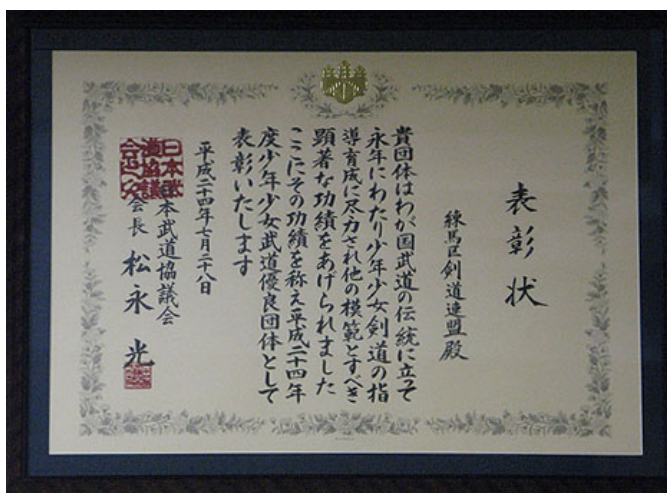 表彰状
練馬区剣道連盟殿
貴団体はわが国武道の伝統に立って
永年にわたり少年少女剣道の指
導育成に尽力され他の模範とすべき
顕著な功績をあげられました
ここにその功績を称え平成二十四年
度少年少女武道優良団体として
表彰いたします
平成二十四年七月二十八日
日本武道協議会
会長 松永光